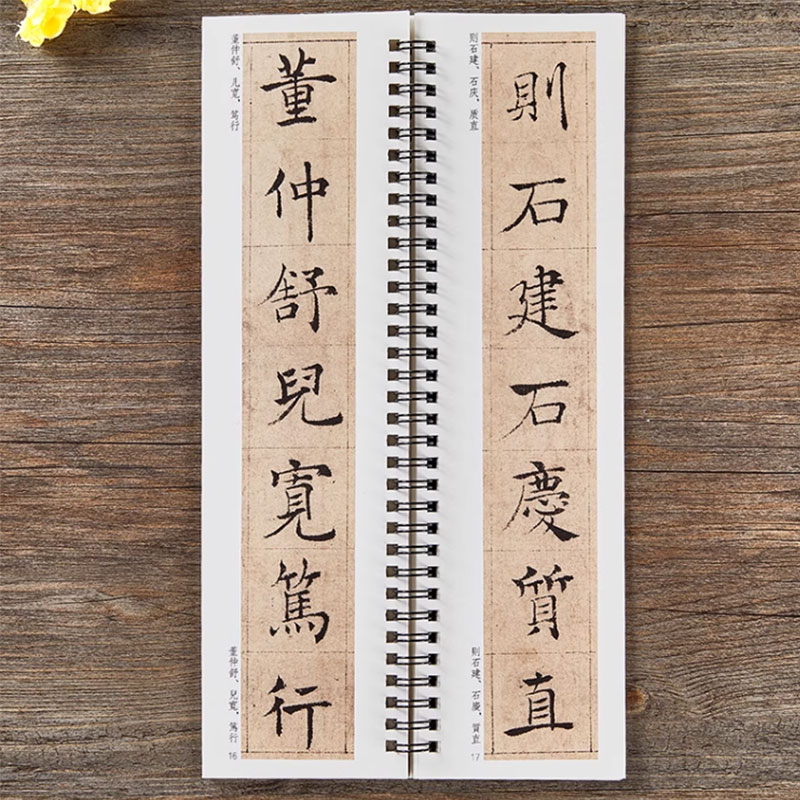 董仲舒、儿宽，笃行
董仲舒兒寬篤行
董仲舒、兒寬，篤行
16
则石建、石庆，质直
則石建石慶質直
則石建、石慶，質直
17